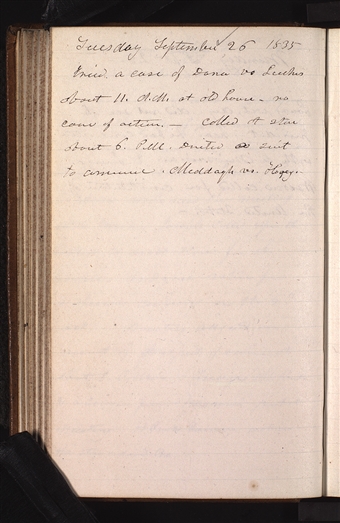 Tuesday September 26 1835
Tried a case of Dana vs
about 11. A.M. at old house - no
cause of action. — Called at store
about 6. P.M. a suit
to commence. Meddagh vs.